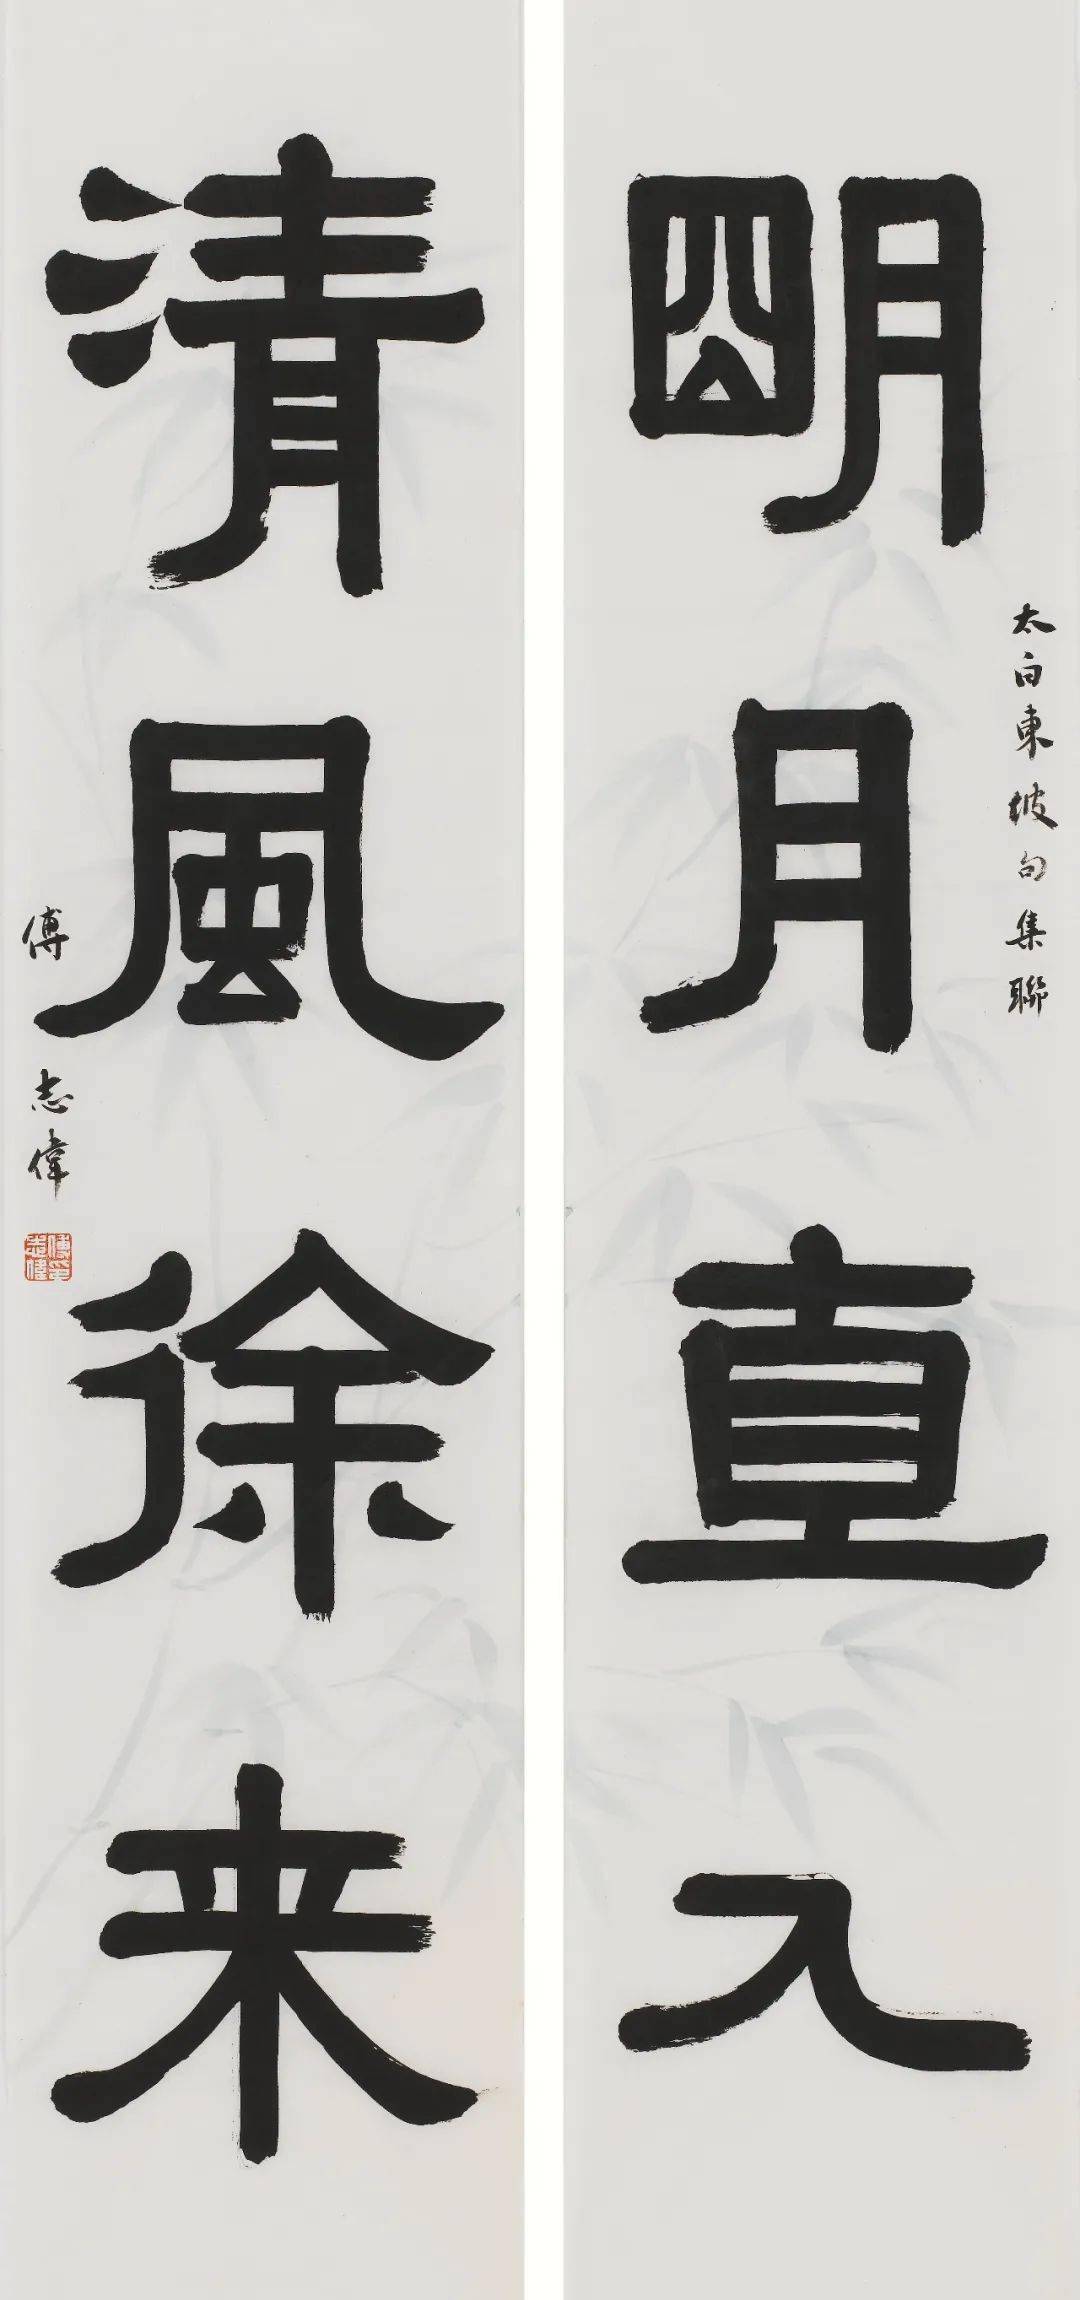 明月直入
太白東坡句集聯
清風徐来
傅志偉
傅志偉印